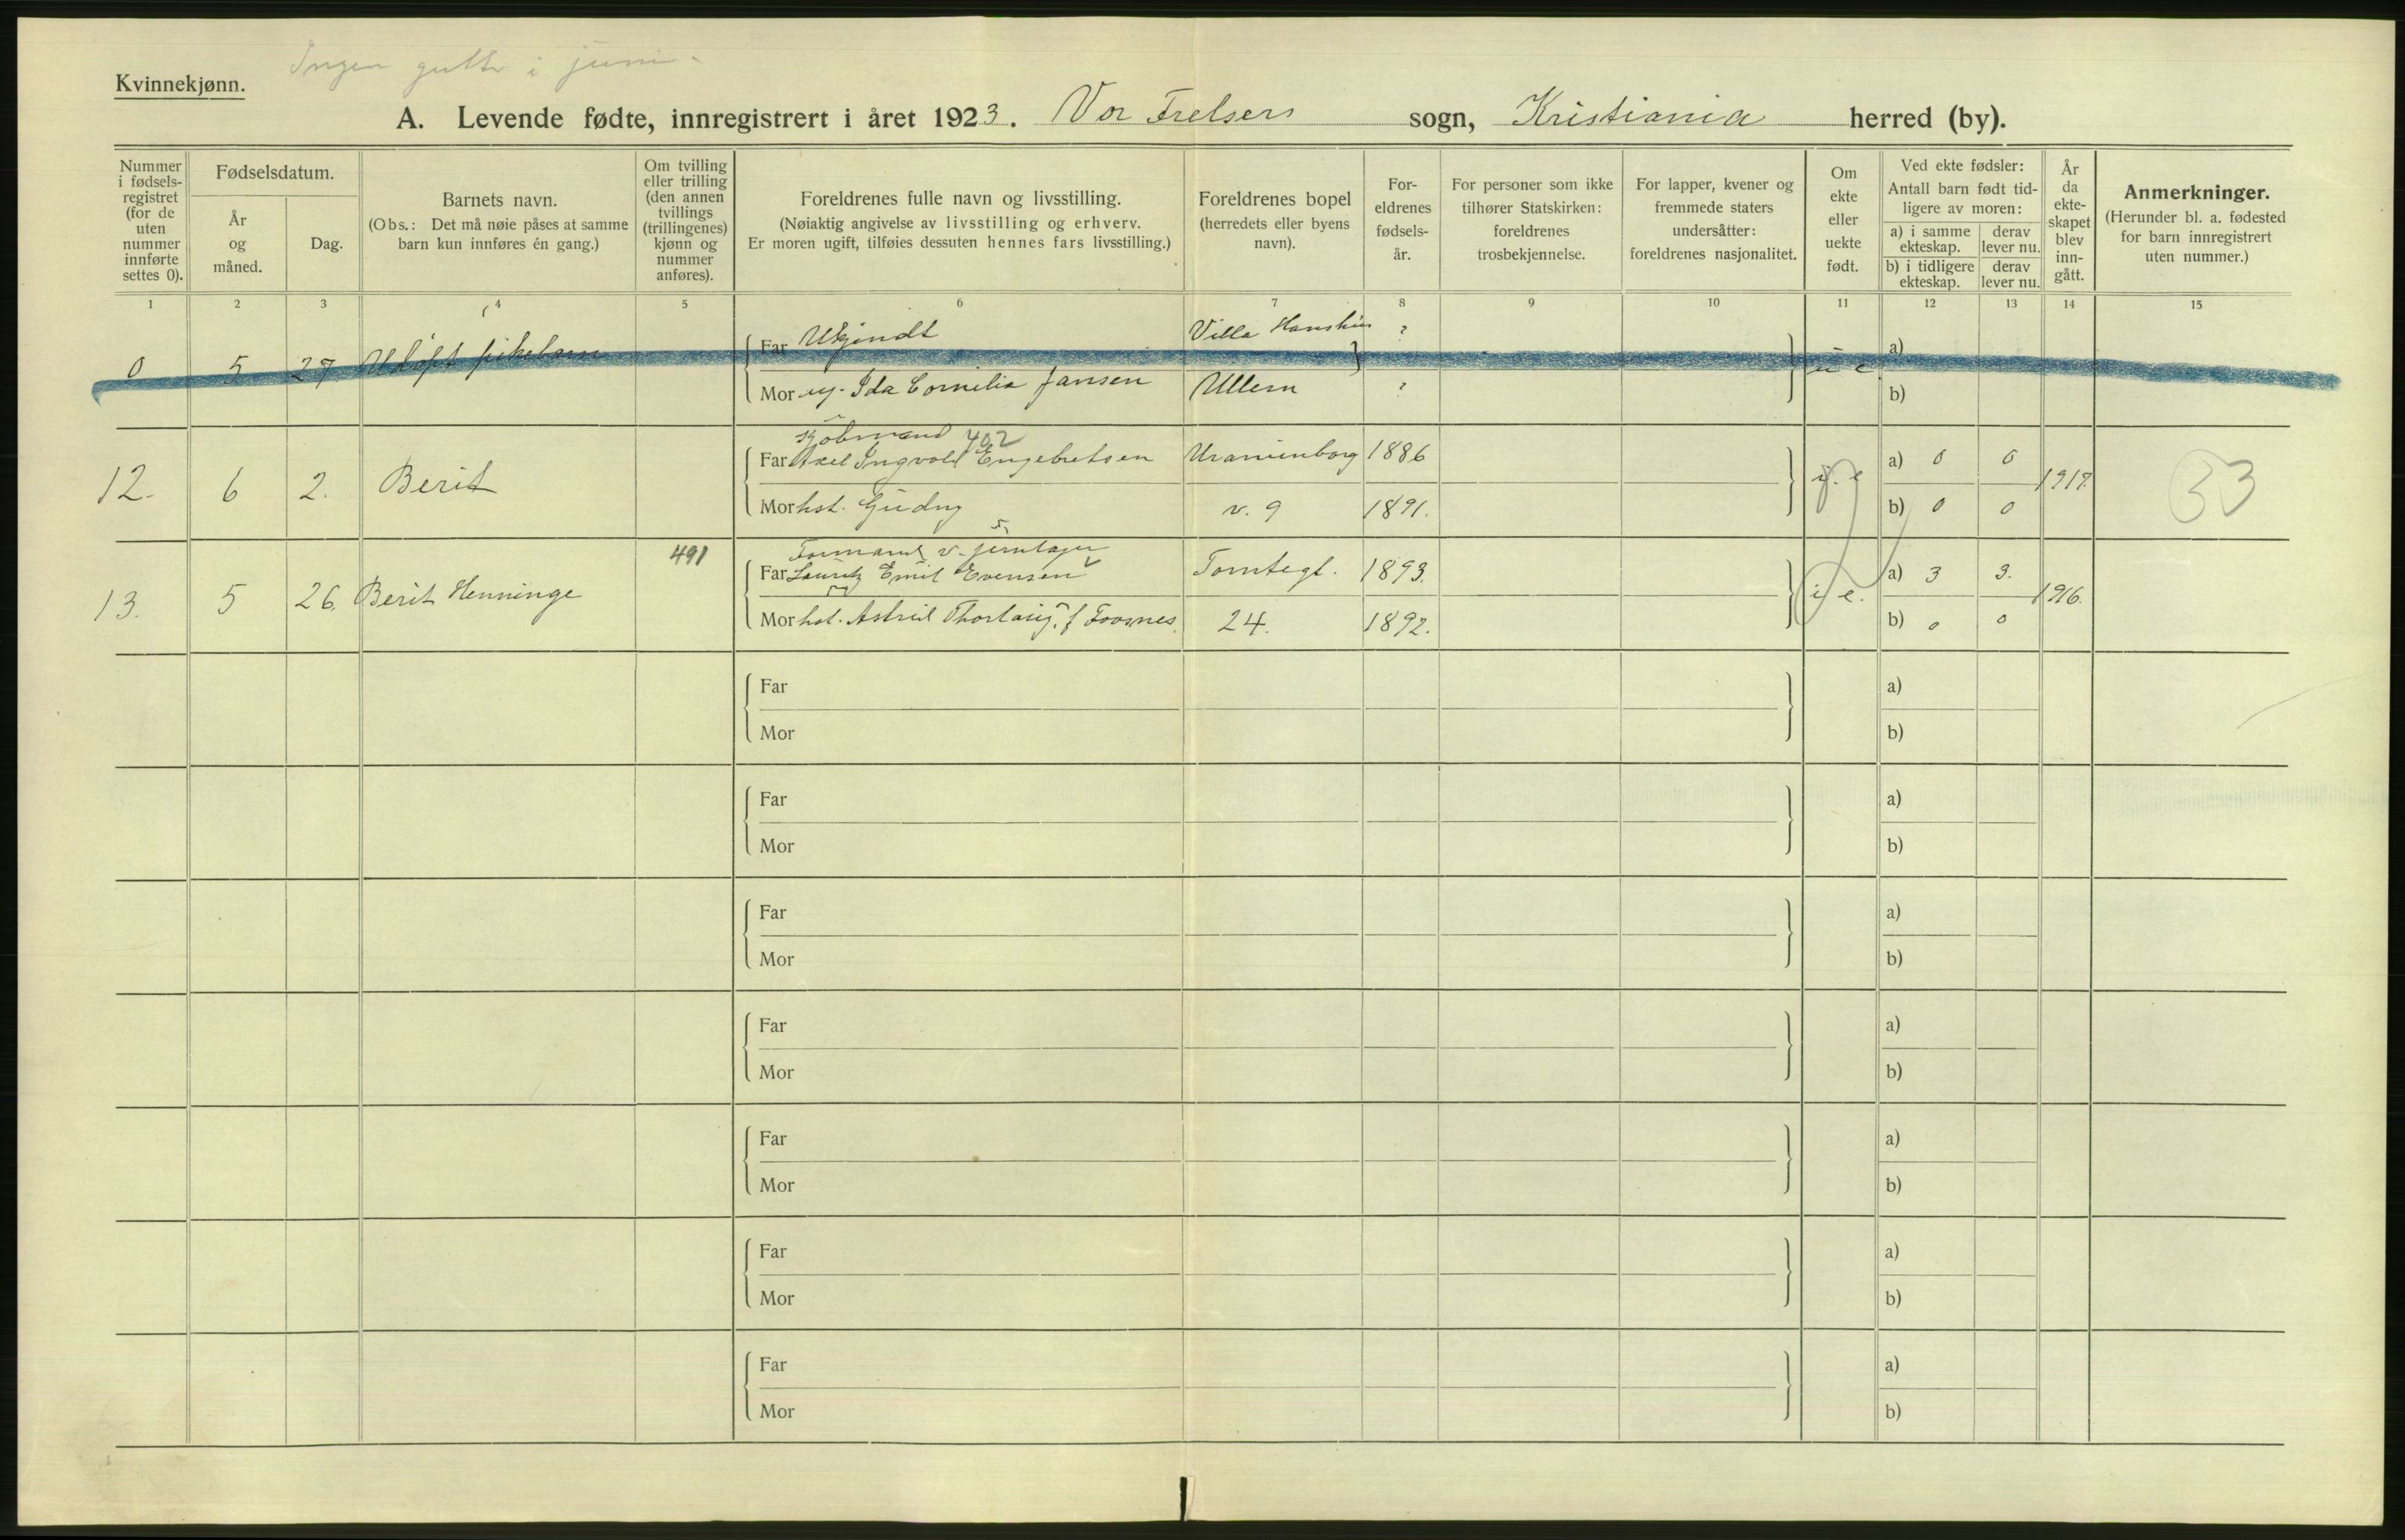 Kvinnekjønn.
Ingen gutter i juni.
A. Levende fødte, innregistrert i året 1923. Vor Frelsers sogn, Kristiania herred (by).
Nummer i fødsels- registret (for de uten nummer innførte settes 0).
Fødselsdatum.
År og måned.
Dag.
Barnets navn.
(Obs.: Det må nøie påses at samme barn kun innføres én gang.)
Om tvilling eller trilling (den annen tvillings (trillingenes) kjønn og nummer anføres).
Foreldrenes fulle navn og livsstilling.
(Nøiaktig angivelse av livsstilling og erhverv.
Er moren ugift, tilføies dessuten hennes fars livsstilling.)
Foreldrenes bopel
(herredets eller byens navn).
For- eldrenes fødsels- år.
For personer som ikke tilhører Statskirken: foreldrenes trosbekjennelse.
For lapper, kvener og fremmede staters undersåtter: foreldrenes nasjonalitet.
Om ekte eller uekte født.
Ved ekte fødsler:
Antall barn født tid- ligere av moren:
a) i samme ekteskap.
derav lever nu.
b) i tidligere ekteskap.
derav lever nu.
År da ekte- skapet blev inn- gått.
Anmerkninger.
(Herunder bl. a. fødested for barn innregistrert uten nummer.)
1 2 3 4 5 6 7 8 9 10 11 12 13 14 15
0 5 27 Udøpt pikebarn
Far Ukjendt Villa ?
u e a)
Mor ug. Ida Cornelia Jansen Ullern ? b)
Kjøbmand 402
Far Axel Ingvold Engebretsen Uranienborg 1886 a) 0 0
12. 6 2. Berit 33
Mor hst. Gudny v. 9 1891. b) 0 0
491
Formand v. jernlager
Far Lauritz Emil Evensen Tomtegt. 1893. a) 3 3.
13. 5 26. Berit Henninge i e. 1916.
Mor hst. Astrid Thorlaug f. Foosnes 24. 1892. b) 0 0
Far a)
Mor b)
Far a)
Mor b)
Far a)
Mor b)
Far a)
Mor b)
Far a)
Mor b)
Far a)
Mor b)
Far a)
Mor b)